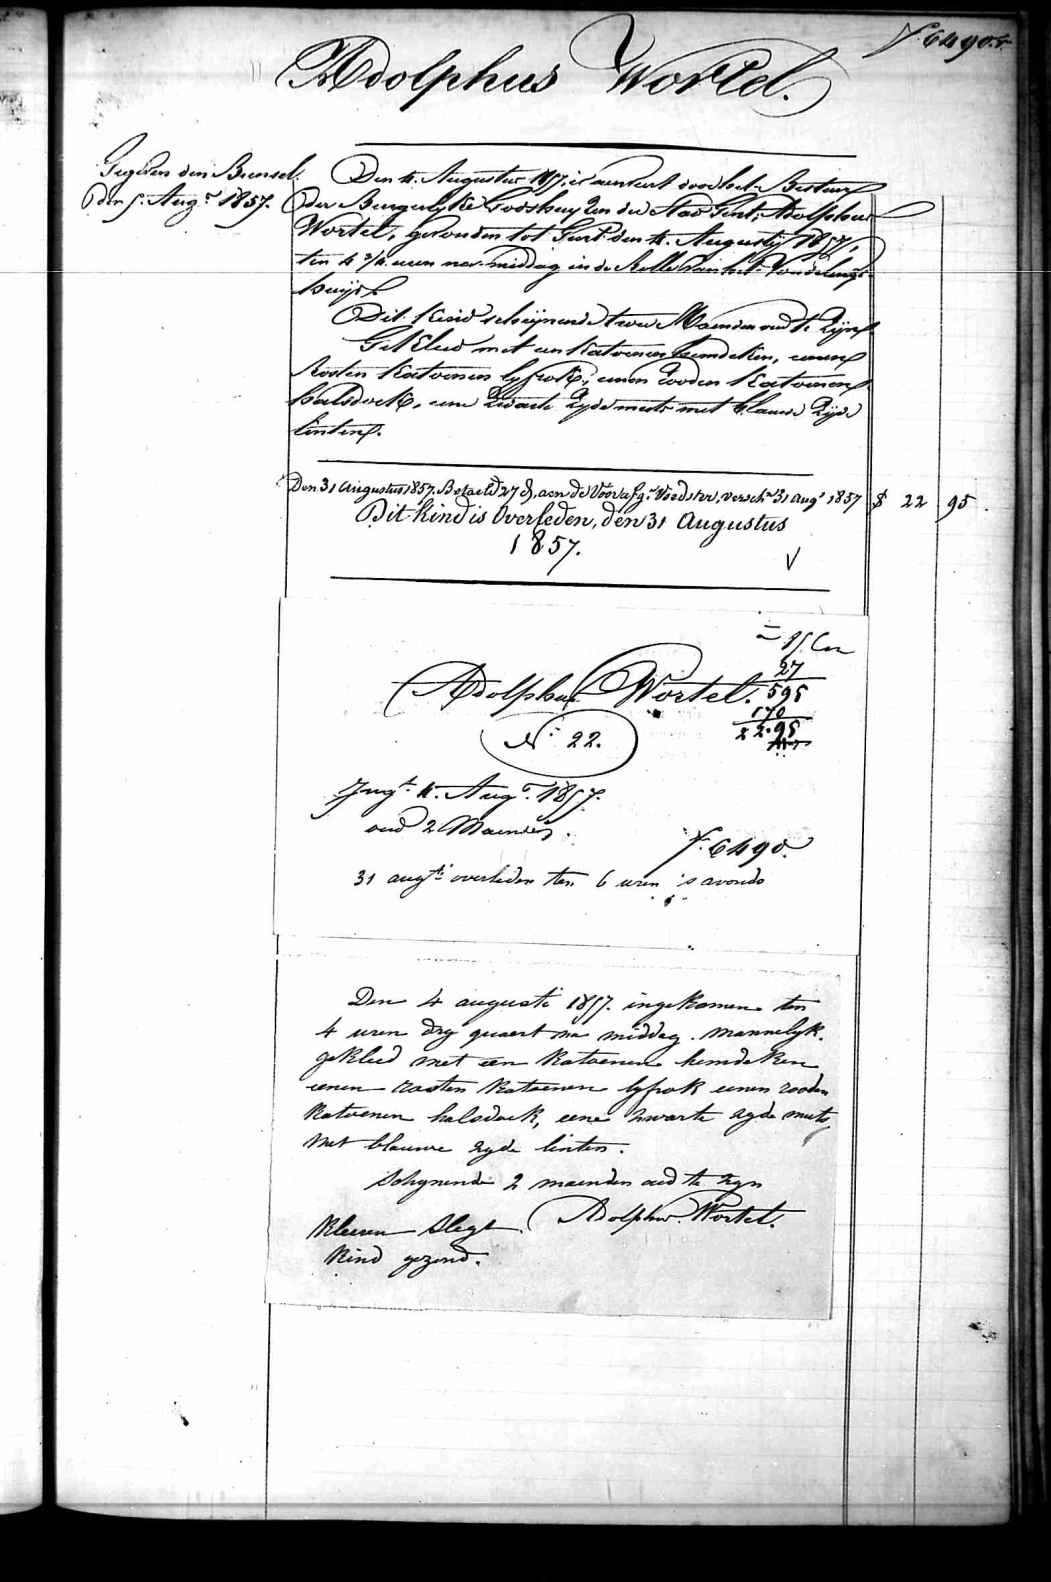 F. 6490.
Adolphus Wortel.
Gegeven den
den 5. Aug.s 1857.
Den 4. Augustus 1857, is aenveert door het Bestuer
der Burgerlyke Godshuyzen der Stad Gent, Adolphus
Wortel, gevonden tot Gent den 4. Augusty 1857,
ten 4 3/4 uren naer middag in de Rolle van het Vondelings-
huys.
Dit Kind schynende twee Maenden oud te Zyn
Gekleed met een Katoenen hemdeken, eenen
Rosten Katoenen lyfrok, eenen Rooden Katoenen
halsdoek, eene Zwarte Zyde muts met blauwe Zyde
linten.
Den 31 Augustus 1857. Betaeld 27 d. aen de Voorafg.e Voedster, versch.n 31 aug.s 1857 $ 22 95.
Dit kind is Overleden, den 31 Augustus
1857.
à 85 Cen
27
595
170
22.95
Adolphus Wortel.
N.° 22.
Ing.t 4. Aug.s 1857.
oud 2 Maenden.
F. 6490.
31 aug.ti overleden ten 6 uren 's avonds
Den 4 augusti 1857. ingekomen ten
4 uren dry quaert na middag. mannelyk.
gekleed met een katoenen hemdeken
eenen rosten katoenen lyfrok eenen rooden
katoenen halsdoek, eene zwarte zyde muts,
met blauwe zyde linten.
Schynende 2 maenden oud te zyn
kleeren slegt Adolphus Wortel.
kind gezond.